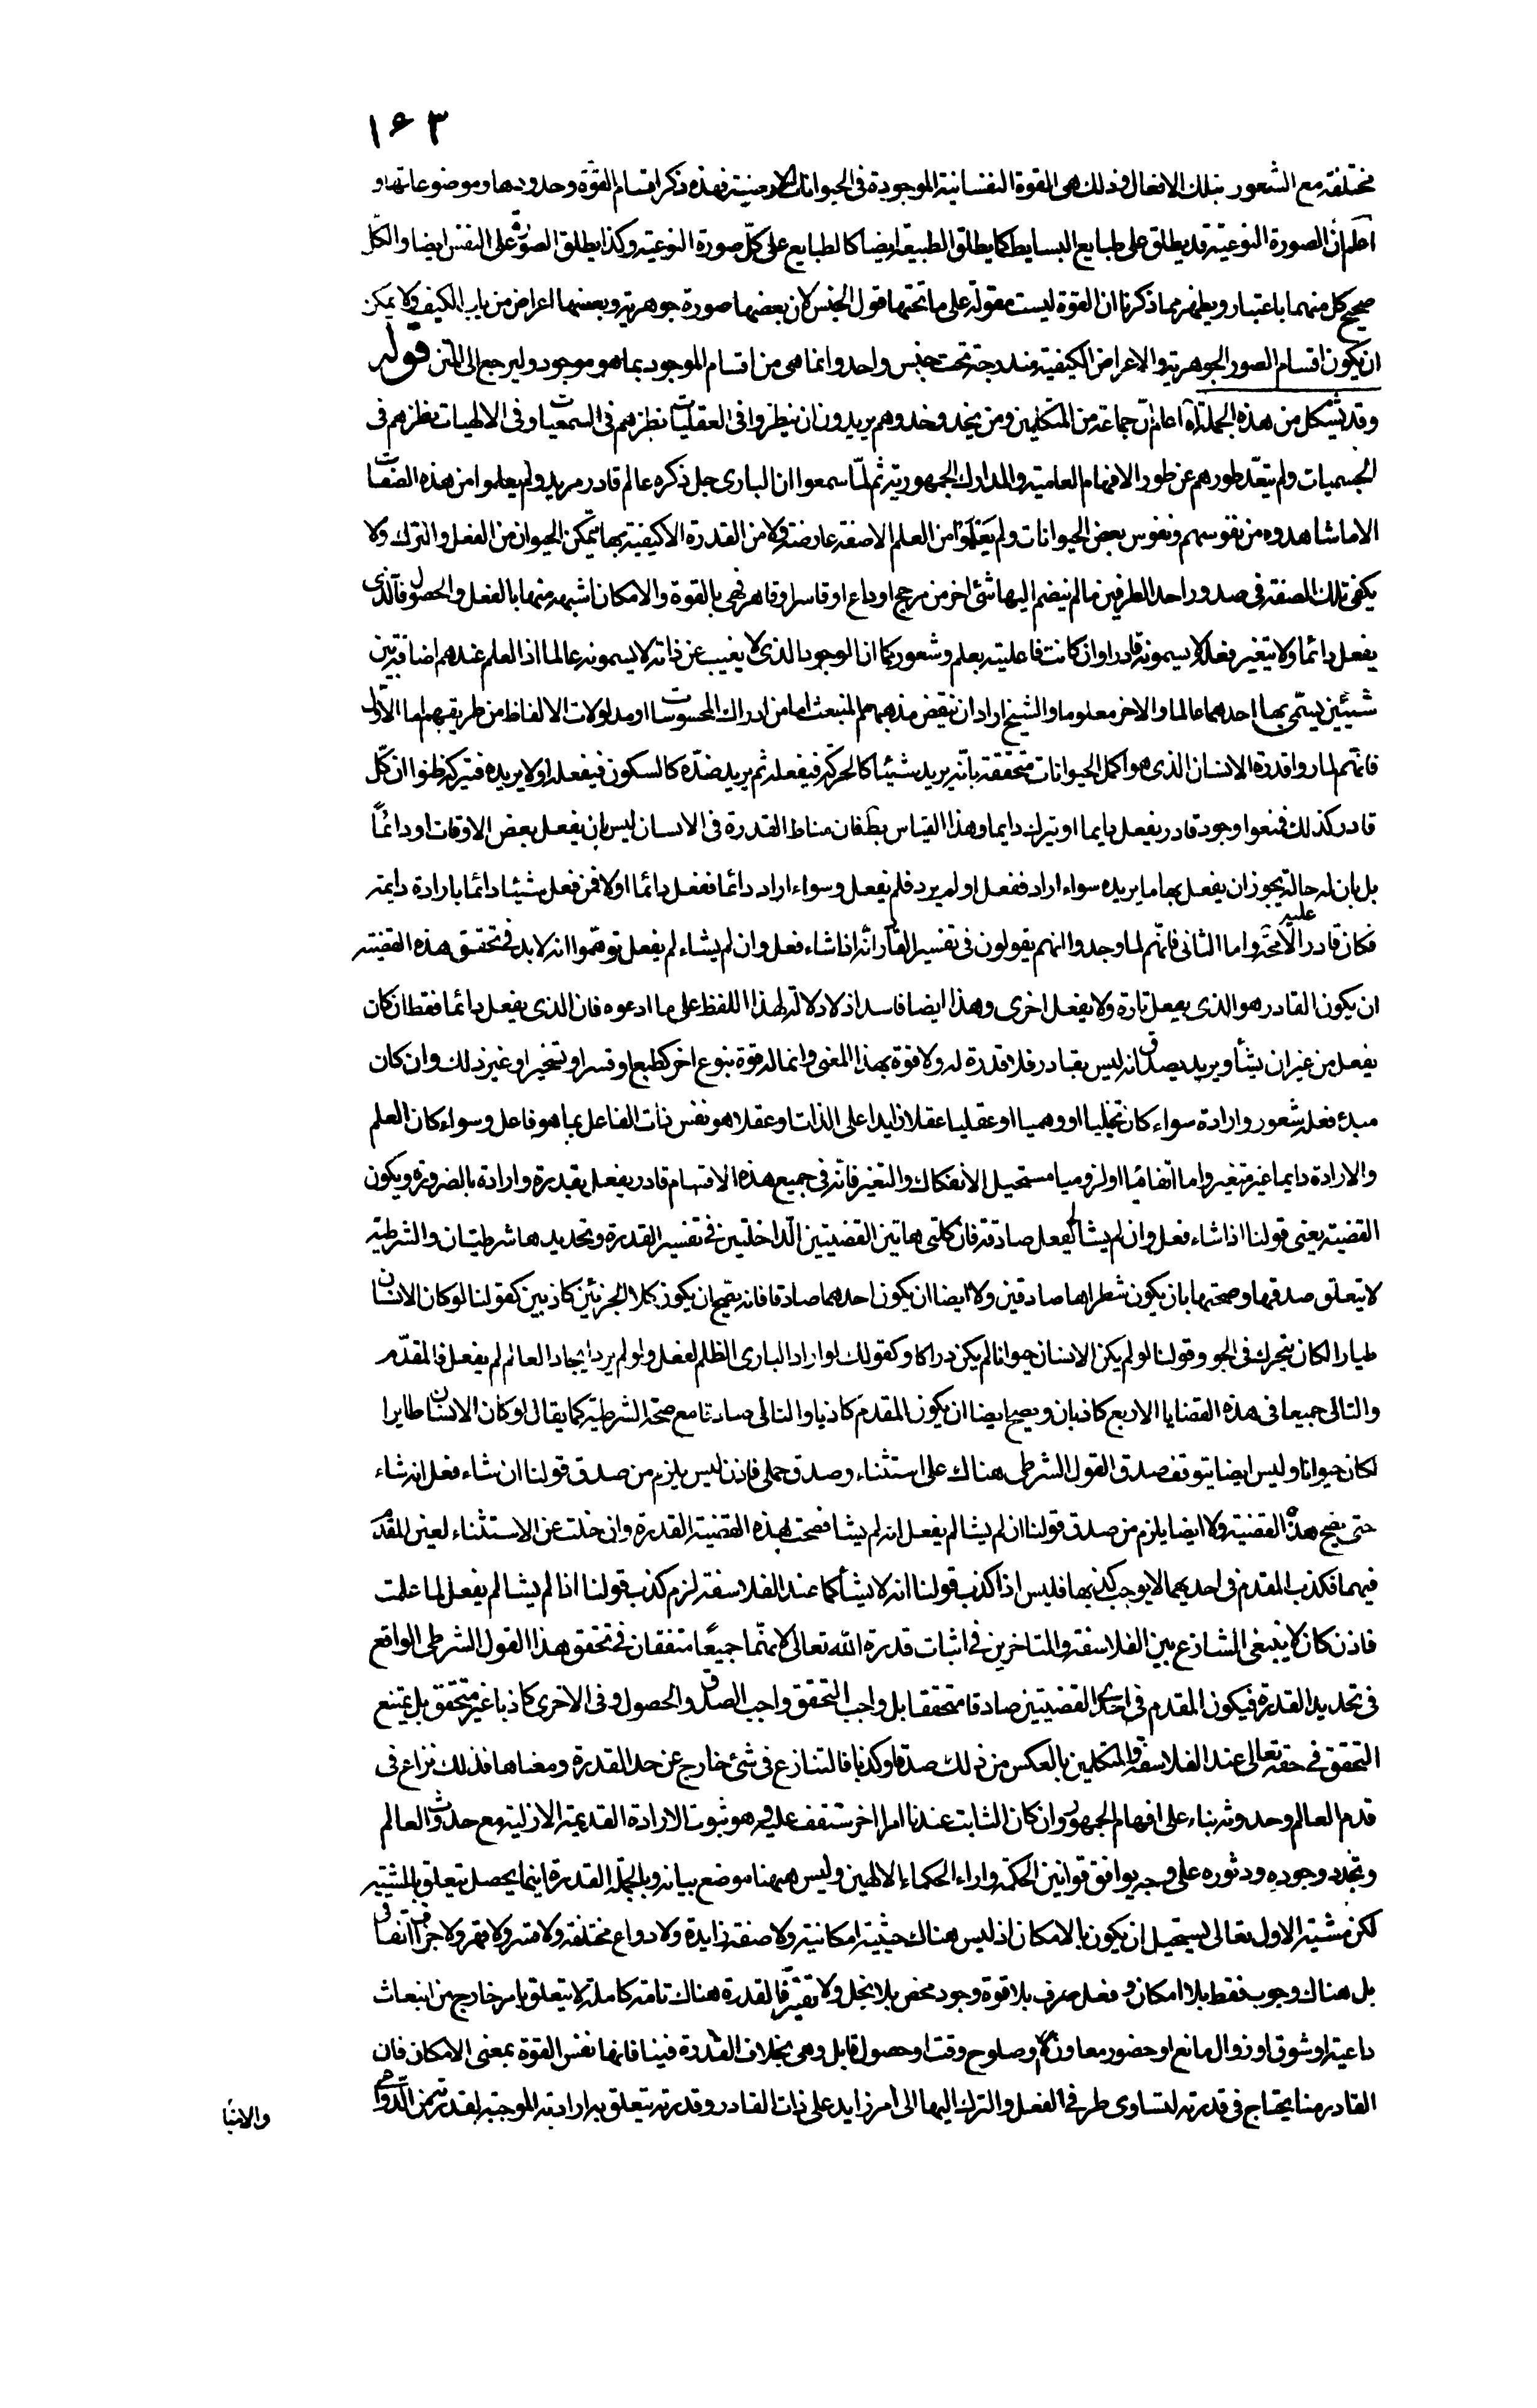 ١٦٣
مختلفة مع الشعور بتلك الافعال وذلك هى القوة النفسانية الموجودة فى الحيوانات الارضية فهذه ذكر اقسام القوة وحدودها وموضوعاتها و
اعلم انّ الصورة النوعيّة قد يطلق على طبايع البسايط كما يطلق الطبيعة ايضا كالطبايع على كلّ صورة النوعية وكذا يطلق الصّورة على النفس ايضا والكلّ
صحيح كل منهما باعتبار ويظهر مما ذكرنا ان القوة ليست مقولة على ما تحتها قول الجنس لان بعضها صورة جوهرية وبعضها اعراض من باب الكيف ولا يمكن
ان يكون اقسام الصور الجوهرية والاعراض الكيفية مندرجة تحت جنس واحد وانما هى من اقسام الموجود بما هو موجود وليرجع الى المتن قوله
وقد يشكل من هذه الجملة اه اعلم انّ جماعة من المتكلمين ومن يحذو حذوهم يريدون ان ينظروا فى العقليات نظرهم فى السمعيات وفى الالهيات نظرهم فى
الجسميات ولم يتعدّ طورهم عن طور الافهام العامية والمدارك الجمهورية ثم لمّا سمعوا ان البارى جل ذكره عالم قادر مريد ولم يعلموا من هذه الصفات
الا ما شاهدوه من نفوسهم ونفوس بعض الحيوانات ولم يعلموا من العلم الا صفة عارضة ولا من القدرة الا كيفية بها يتمكن الحيوان من الفعل والترك ولا
يكفى تلك الصفة فى صدور احد الطرفين ما لم ينضم اليها شئ اخر من مرجح او داع او قاسر او قاهر فهى بالقوة والامكان اشبه منها بالفعل والحصول فالّذى
يفعل دائما ولا يتغير فعله لا يسمونه قادرا وان كانت فاعليته بعلم وشعور كما ان الوجود الذى لا يغيب عن ذاته لا يسمونه عالما اذ العلم عندهم اضافة بين
شيئين يسمّى بها احدهما عالما والاخر معلوما والشيخ اراد ان ينقض مذهبهم المنبعث اما من ادراك المحسوسات او مدلولات الالفاظ من طريقهم اما الاوّل
فانّهم لما روا قدرة الانسان الذى هو اكمل الحيوانات متحققة بانّه يريد شيئا كالحركة فيفعله ثم يريد ضدّه كالسكون فيفعله او لا يريده فيتركه ظنوا ان كلّ
قادر كذلك فمنعوا وجود قادر يفعل دايما او يترك دايما وهذا القياس بط فان مناط القدرة فى الانسان ليس بان يفعل بعض الاوقات او دائماً
بل بان له حالة يجوز ان يفعل بها ما يريده سواء اراد ففعل او لم يرد فلم يفعل وسواء اراد دائما ففعل دائما او لا فمن فعل شيئا دائما بارادة دايمة
فكان قادر الّا محة عليه واما الثانى فانّهم لما وجدوا انهم يقولون فى تفسير القادر انّه اذا شاء فعل وان لم يشاء لم يفعل توهّموا انه لا بد فى تحقق هذه القضية
ان يكون القادر هو الذى يفعل تارة ولا يفعل اخرى وهذا ايضا فاسد اذ لا دلالة لهذا اللفظ على ما ادعوه فان الذى يفعل دائما فقط ان كان
يفعل من غير ان يشأ ويريد يصدق انه ليس بقادر فلا قدرة له ولا قوة بهذا المعنى وانما له قوة بنوع اخر كطبع او قسر او تسخير او غير ذلك وان كان
مبدء فعله شعور وارادة سواء كان تخيليا او وهميا او عقليا عقلا زايدا على الذات او عقلا هو نفس ذات الفاعل بما هو فاعل وسواء كان العلم
والارادة دايما غير متغير واما اتفاقيا او لزوميا مستحيل الانفكاك والتغير فانّه فى جميع هذه الاقسام قادر يفعل بقدرة وارادة بالضرورة ويكون
القضية يعنى قولنا اذا شاء فعل وان لم يشا لم يفعل صادقة فان كلتى هاتين القضيتين الدّاخلتين فى تفسير القدرة وتحديدها شرطيتان والشرطية
لا يتعلّق صدقها وصحتها بان يكون شطراها صادقين ولا ايضا ان يكون احدهما صادقا فانه يصحّ ان يكون كلا الجزئين كاذبين كقولنا لو كان الانسان
طيارا لكان يتحرك فى الجو وقولنا لو لم يكن الانسان حيوانا لم يكن دراكا وكقولك لو اراد البارى الظلم لفعل ولو لم يرد ايجاد العالم لم يفعل فالمقدّم
والتالى جميعا فى هذه القضايا الاربع كاذبان ويصح ايضا ان يكون المقدم كاذبا والتالى صادقا مع صحة الشرطية كما يقال لو كان الانسان طايرا
لكان حيوانا وليس ايضا يتوقف صدق القول الشرطى هناك على استثناء وصدق حملى فاذن ليس يلزم من صدق قولنا ان شاء فعل انه شاء
حتى يصح هذه القضية ولا ايضا يلزم من صدق قولنا ان لم يشا لم يفعل انه لم يشا فصحت لهذه القضية القدرة وان خلت عن الاستثناء لعين المقدّم
فيهما فكذب المقدم فى احديهما لا يوجب كذبها فليس اذا كذب قولنا انه لا يشأ كما عند الفلاسفة لزم كذب قولنا اذا لم يشا لم يفعل لما علمت
فاذن كان لا ينبغى التنازع بين الفلاسفة والمتاخرين فى اثبات قدرة الله تعالى لانهما جميعًا متفقان فى تحقق هذا القول الشرطى الواقع
فى تحديد القدرة فيكون المقدم فى احدى القضيتين صادقا متحققا بل واجب التحقق واجب الصدق والحصول وفى الاخرى كاذبا غير متحقق بل يمتنع
التحقق فى حقه تعالى عند الفلاسفة والمتكلمين بالعكس من ذلك صدقا وكذبا فالتنازع فى شئ خارج عن حد القدرة ومعناها فذلك نزاع فى
قدم العالم وحدوثه بناء على افهام الجمهور وان كان الثابت عندنا امرا اخر ستقف عليه وهو ثبوت الارادة القديمة الازلية مع حدوث العالم
وتجدد وجوده ودثوره على وجه يوافق قوانين الحكمة واراء الحكماء الالهين وليس ههنا موضع بيانه وبالجملة القدرة اينما يحصل يتعلق بالمشية
لكن مشية الاول تعالى يستحيل ان يكون بالامكان اذ ليس هناك حيثية امكانية ولا صفة زايدة ولا دواع مختلفة ولا قسر ولا قهر ولا جزاف اتفاق
بل هناك وجوب فقط بلا امكان وفعل صرف بلا قوة وجود محض بلا بخل ولا تقتّر فالقدرة هناك تامة كاملة لا يتعلق بامر خارج من انبعاث
داعية او شوق او زوال مانع او حضور معاون وصلوح وقت او حصول قابل وهى بخلاف القدرة فينا فانها نفس القوة بمعنى الامكان فان
القادر منا يحتاج فى قدرته لتساوى طرفى الفعل والترك اليها الى امر زايد على ذات القادر وقدرته يتعلق به ارادته الموجبة لقدرته من الدّواعى